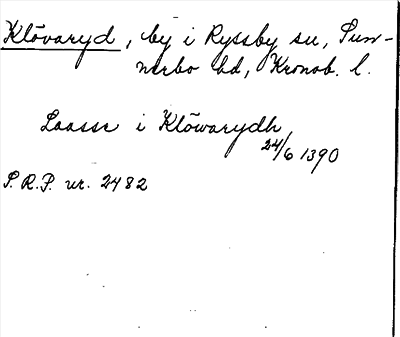 Klövaryd, by i Ryssby sn, Sun-
nerbo hd, Kronob. l.
Laasse i Klöwarydh
24/6 1390
S.R.P. nr. 2482